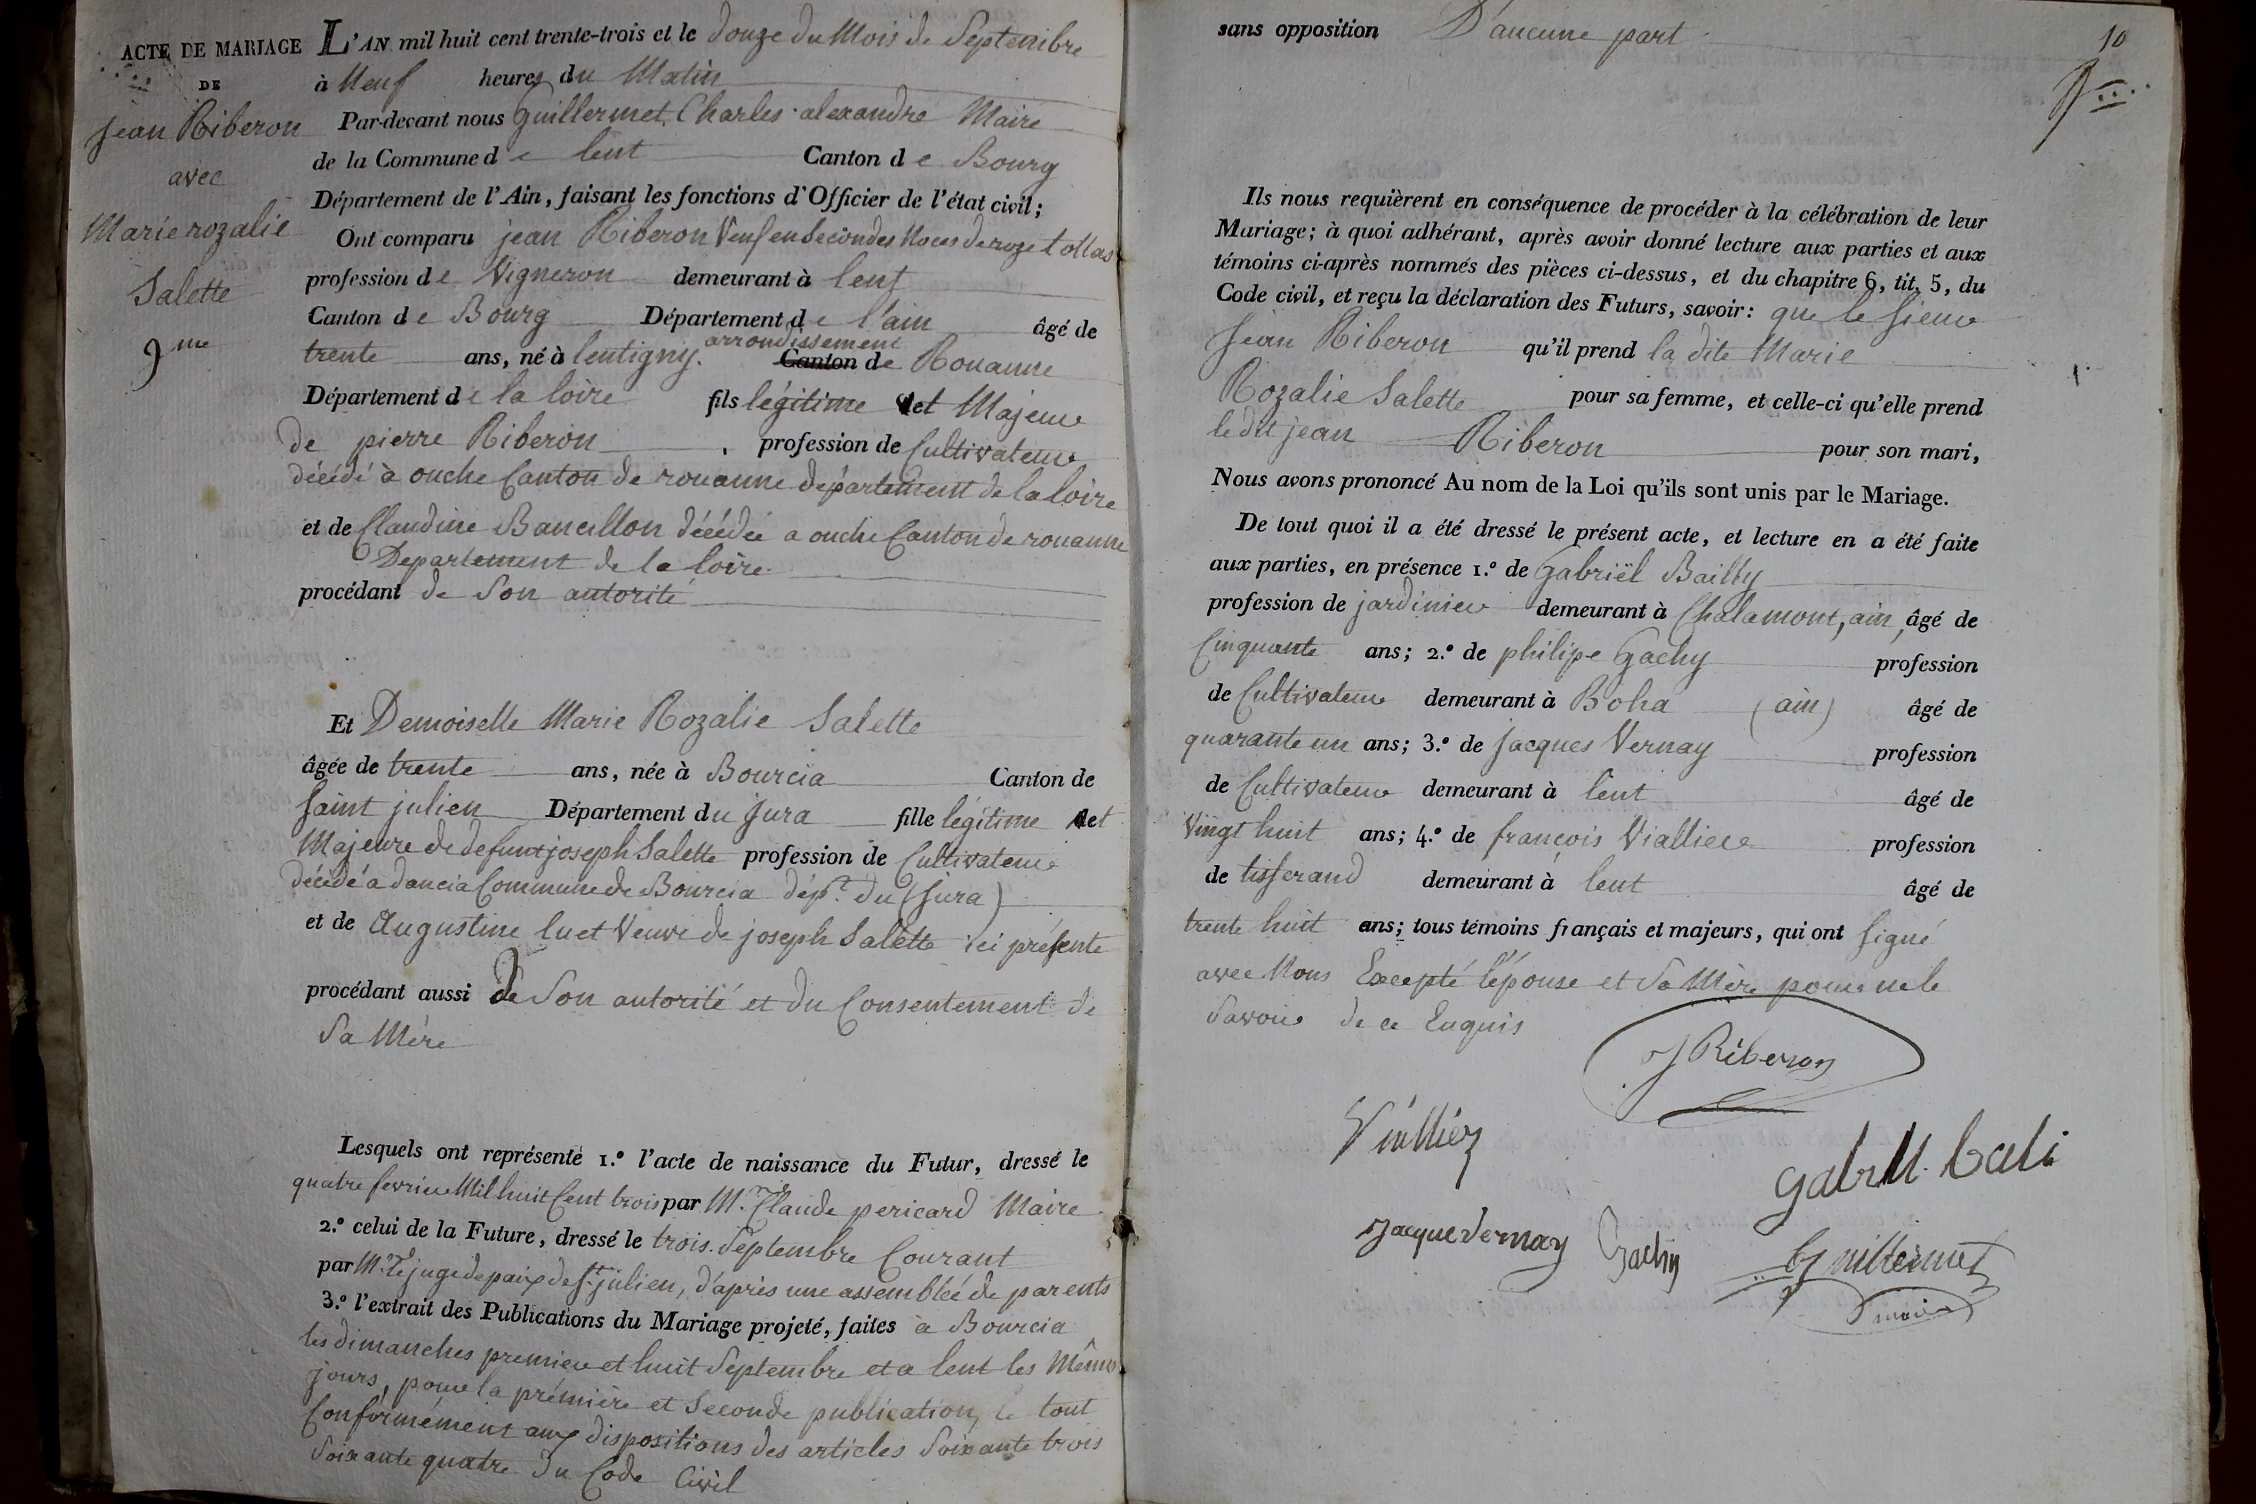 ACTE DE MARIAGE
DE
Jean Riberon
avec
Marie rozalie
Salette
9me
L'AN mil huit cent trente-trois et le douze du Mois de Septembre
à Neuf heures du Matin
Par-devant nous Guillermet, Charles-alexandre Maire
de la Commune de lent Canton de Bourg
Département de l'Ain, faisant les fonctions d'Officier de l'état civil;
Ont comparu jean Riberon Veuf en Secondes Noces de roze tollas
profession de Vigneron demeurant à lent
Canton de Bourg Département de l'ain âgé de
arrondissement
trente ans, né à lentigny. Canton de Rouanne
Département de la loire fils légitime et Majeur
de pierre Riberon profession de Cultivateur
décédé à ouche Canton de rouanne département de la loire
et de Claudine Bancillon décédée a ouche Canton de rouanne
Departement de la loire
procédant de Son autorité
Et Demoiselle Marie Rozalie Salette
âgée de trente ans, née à Bourcia Canton de
Saint julien Département du jura fille légitime et
Majeure de defunt joseph Salette profession de Cultivateur
décédé a dancia Commune de Bourcia dépt. du (jura)
et de Augustine luet Veuve de joseph Salette ici présente
procédant aussi de Son autorité et du Consentement de
Sa Mère
Lesquels ont représenté 1.º l'acte de naissance du Futur, dressé le
quatre fevrier Mil huit Cent trois par Mr. Claude pericard Maire
2.º celui de la Future, dressé le trois Septembre Courant
par Mr. le juge de paix de St. julien, d'après une assemblée de parents
3.º l'extrait des Publications du Mariage projeté, faites a Bourcia
les dimanches premier et huit Septembre et a lent les Mêmes
jours, pour la prémière et Seconde publication, le tout
Conformément aux dispositions des articles Soixante trois
Soixante quatre du Code Civil
sans opposition D'aucune part
10
Ils nous requièrent en conséquence de procéder à la célébration de leur
Mariage; à quoi adhérant, après avoir donné lecture aux parties et aux
témoins ci-après nommés des pièces ci-dessus, et du chapitre 6, tit. 5, du
Code civil, et reçu la déclaration des Futurs, savoir: que le Sieur
Jean Riberon qu'il prend la dite Marie
Rozalie Salette pour sa femme, et celle-ci qu'elle prend
le dit jean Riberon pour son mari,
Nous avons prononcé Au nom de la Loi qu'ils sont unis par le Mariage.
De tout quoi il a été dressé le présent acte, et lecture en a été faite
aux parties, en présence 1.º de Gabriël Bailly
profession de jardinier demeurant à Chalamont, ain, âgé de
Cinquante ans; 2.º de philipe Gachy profession
de Cultivateur demeurant à Boha (ain) âgé de
quarante un ans; 3.º de Jacques Vernay profession
de Cultivateur demeurant à lent âgé de
Vingt huit ans; 4.º de françois Viallier profession
de tisserand demeurant à lent âgé de
trente huit ans; tous témoins français et majeurs, qui ont Signé
avec Nous Excepté l'épouse et Sa Mère pour ne le
Savoir de ce Enquis
J Riberon
Viallier
Gabriel bali
Jacque Vernay Gachy Guillermet
maire